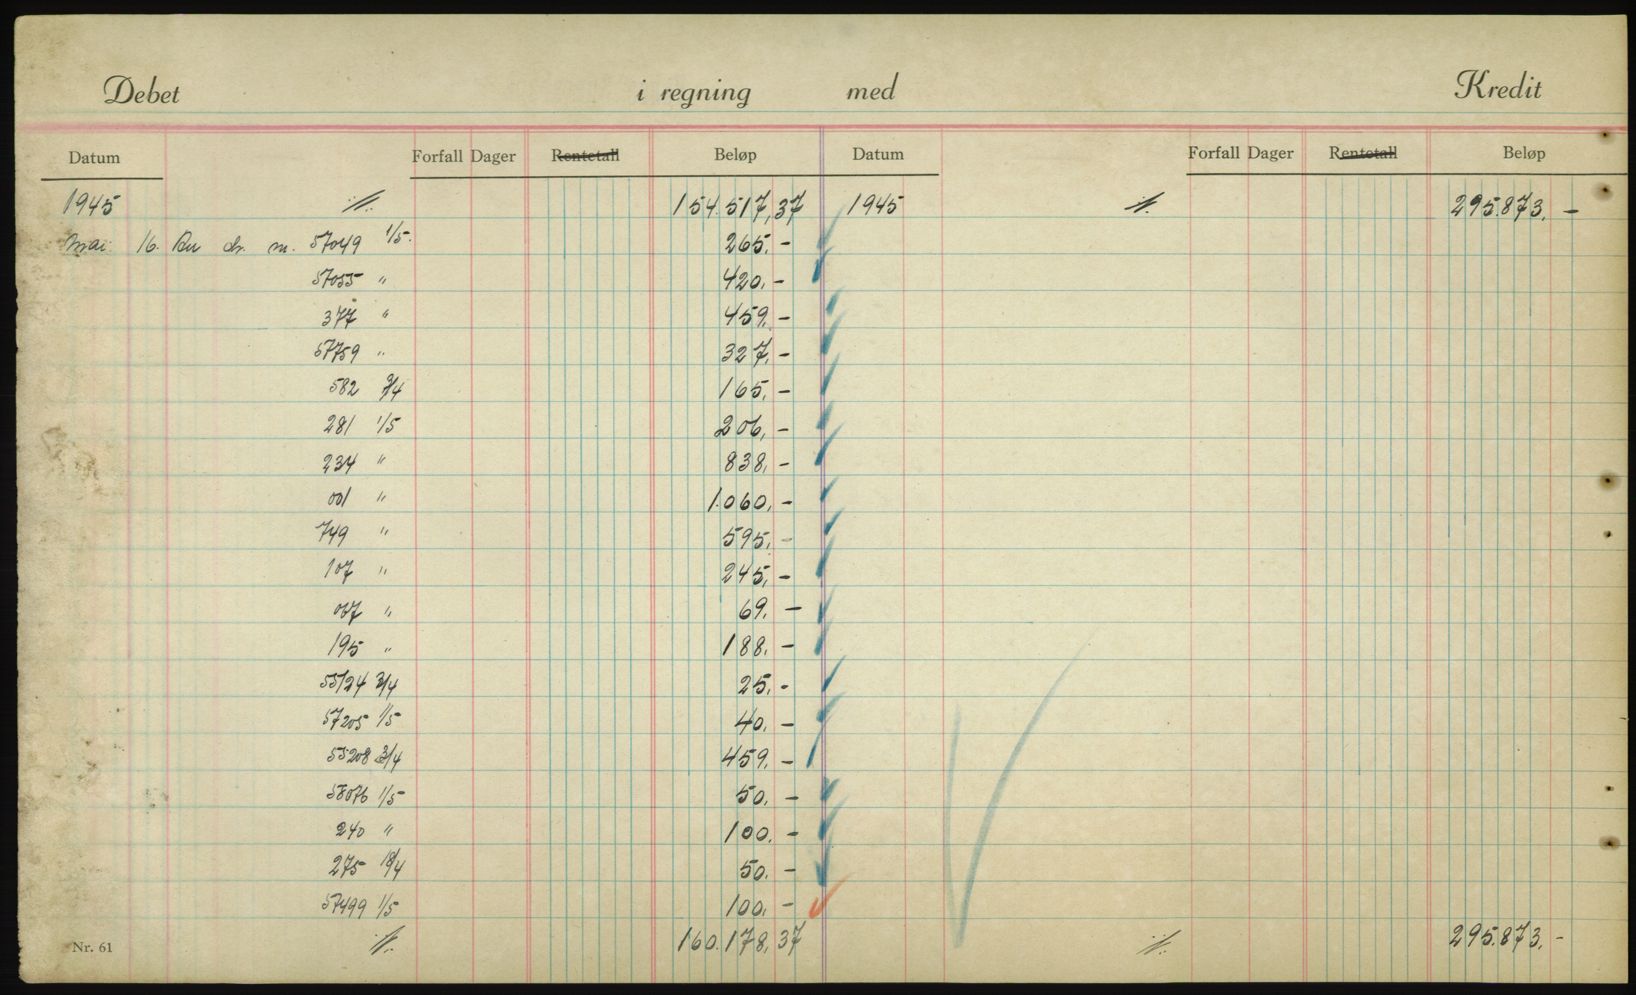 Debet i regning med Kredit
Datum Forfall Dager Rentetall Beløp Datum Forfall Dager Rentetall Beløp
1945 154.517,37 1945 295.873,-
Mai 16. 57049 1/5. 265.-
57055 " 420,-
377 " 459,-
57759 " 327,-
582 3/4 165,-
281 1/5 206,-
234 " 838,-
001 " 1.060,-
749 " 595,-
107 " 245,-
067 " 69,-
195 " 188,-
55124 3/4 25,-
57205 1/5 40,-
55208 3/4 459,-
58076 1/5 50,-
240 " 100,-
275 18/4 50,-
57499 1/5 100,-
Nr. 61 160.178,37 295.873,-